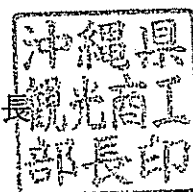 長
沖縄県
観光商工
部長印